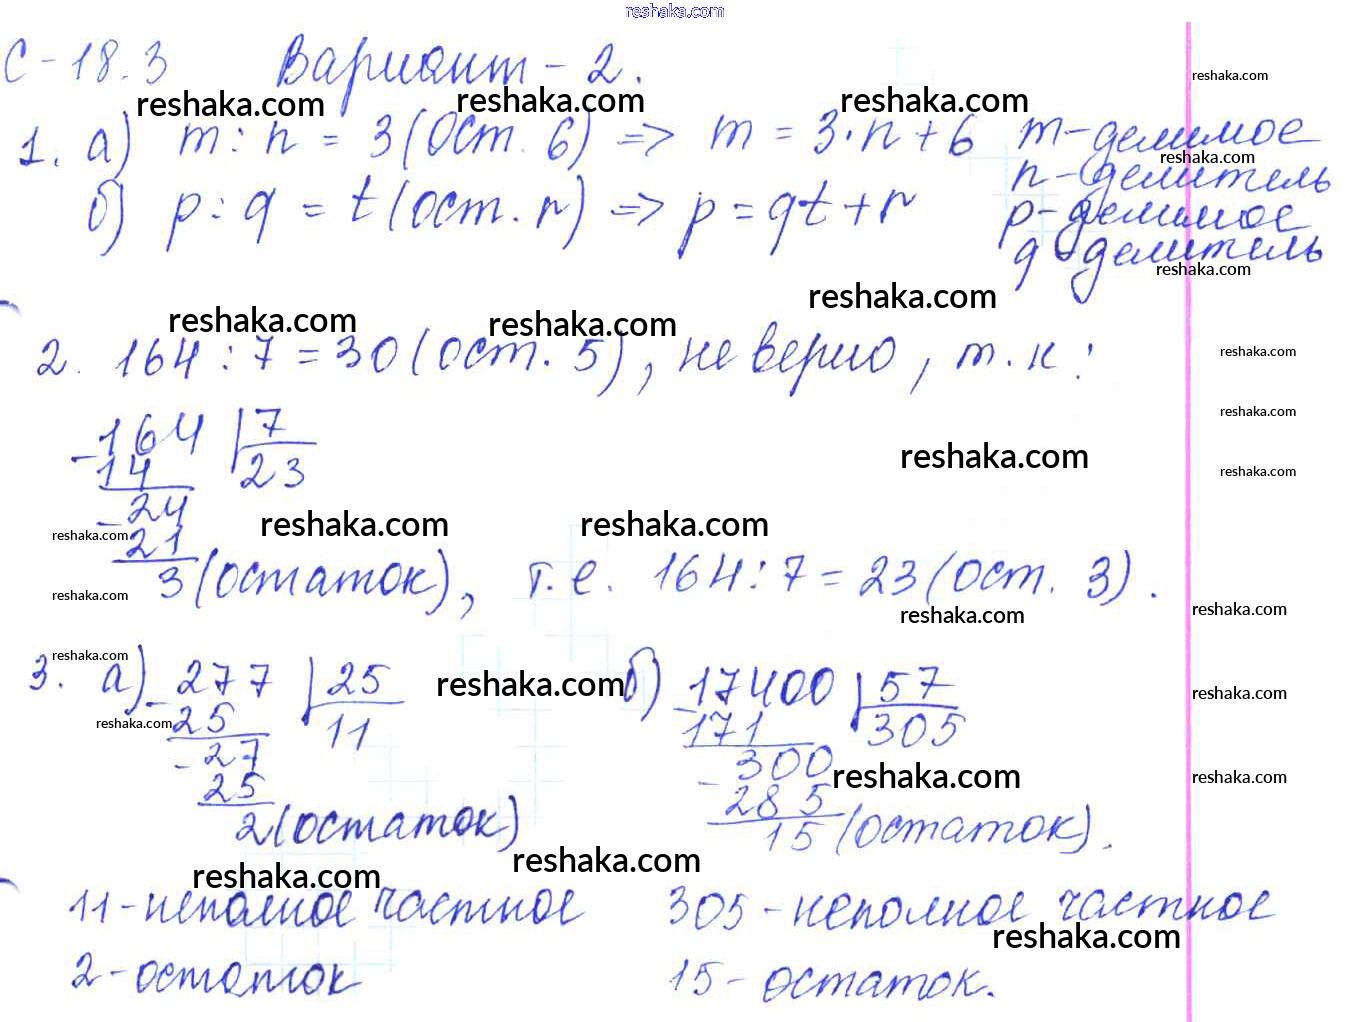 reshaka.com
С-18.3 Вариант-2.
reshaka.com
reshaka.com reshaka.com reshaka.com
1. а) m : n = 3 (ост. 6) => m = 3·n + 6 m-делимое
reshaka.com
n-делитель
б) p : q = t (ост. r) => p = qt + r p-делимое
q-делитель
reshaka.com
reshaka.com
reshaka.com reshaka.com
2. 164 : 7 = 30 (ост. 5), не верно, т.к:
reshaka.com
reshaka.com
- 164 | 7
14 23
reshaka.com
reshaka.com
- 24
reshaka.com reshaka.com
21
reshaka.com
3 (остаток), т.е. 164 : 7 = 23 (ост. 3).
reshaka.com
reshaka.com reshaka.com
reshaka.com
3. а) - 277 | 25 reshaka.com б) - 17400 | 57
reshaka.com
25 11 171 305
reshaka.com
- 27 - 300
reshaka.com reshaka.com
25 285
2 (остаток) 15 (остаток).
reshaka.com
reshaka.com
11-неполное частное 305-неполное частное
reshaka.com
2-остаток 15-остаток.